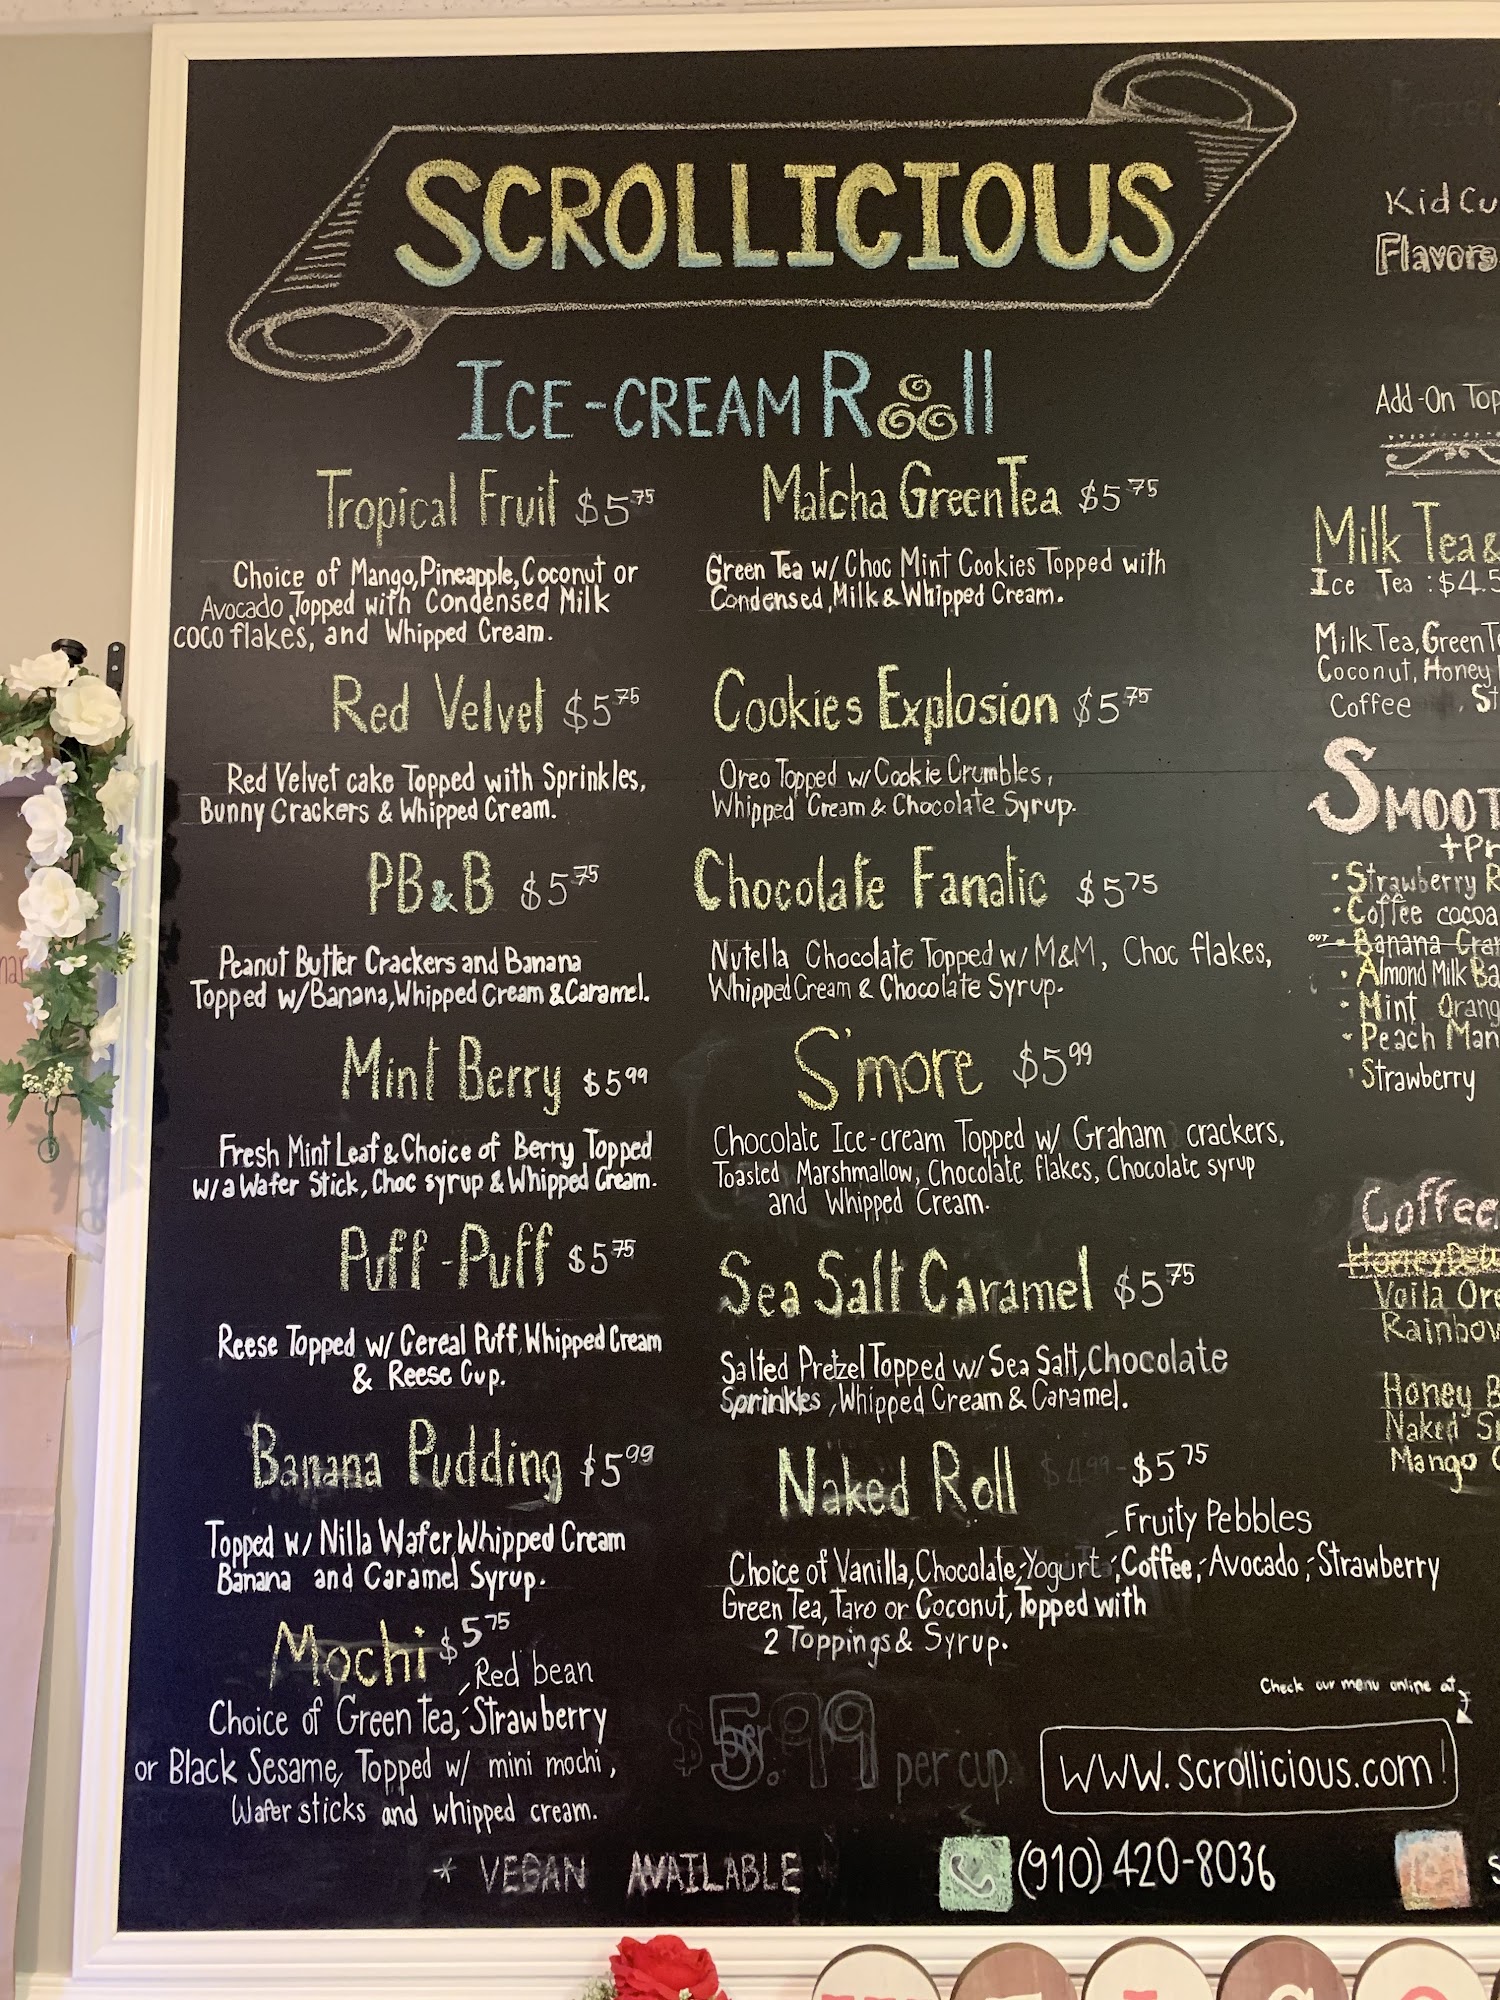 SCROLLICIOUS
ICE-CREAM Roll
Tropical Fruit $5.75
Choice of Mango, Pineapple, Coconut or
Avocado Topped with Condensed Milk
coco flakes, and Whipped Cream.
Red Velvet $5.75
Red Velvet cake Topped with Sprinkles,
Bunny Crackers & Whipped Cream.
PB&B $5.75
Peanut Butter Crackers and Banana
Topped w/Banana, Whipped Cream & Caramel.
Mint Berry $5.99
Fresh Mint Leaf & Choice of Berry Topped
w/a Wafer Stick, Choc syrup & Whipped Cream.
Puff-Puff $5.75
Reese Topped w/ Cereal Puff, Whipped Cream
& Reese Cup.
Banana Pudding $5.99
Topped w/ Nilla Wafer, Whipped Cream
Banana and Caramel Syrup.
Mochi $5.75
, Red bean
Choice of Green Tea, Strawberry
or Black Sesame, Topped w/ mini mochi,
Wafer sticks and whipped cream.
* VEGAN AVAILABLE
Matcha Green Tea $5.75
Green Tea w/ Choc Mint Cookies Topped with
Condensed, Milk & Whipped Cream.
Cookies Explosion $5.75
Oreo Topped w/ Cookie Crumbles,
Whipped Cream & Chocolate Syrup.
Chocolate Fanatic $5.75
Nutella Chocolate Topped w/ M&M, Choc flakes,
Whipped Cream & Chocolate Syrup.
S'more $5.99
Chocolate Ice-cream Topped w/ Graham crackers,
Toasted Marshmallow, Chocolate flakes, Chocolate syrup
and Whipped Cream.
Sea Salt Caramel $5.75
Salted Pretzel Topped w/ Sea Salt, Chocolate
Sprinkles, Whipped Cream & Caramel.
Naked Roll $4.99 - $5.75
, Fruity Pebbles
Choice of Vanilla, Chocolate, Yogurt, Coffee, Avocado, Strawberry
Green Tea, Taro or Coconut, Topped with
2 Toppings & Syrup.
$5.99 per cup.
Check our menu online at
www.scrollicious.com!
(910) 420-8036
Kid Cu
Flavors
Add-On Top
Milk Tea &
Ice Tea : $4.5
Milk Tea, Green Te
Coconut, Honey
Coffee , St
SMOOT
+Pr
· Strawberry R
· Coffee cocoa
OUT · Banana Cra
· Almond Milk Ba
· Mint Orang
· Peach Man
· Strawberry
Coffee
Voila Ore
Rainbow
Honey B
Naked S
Mango